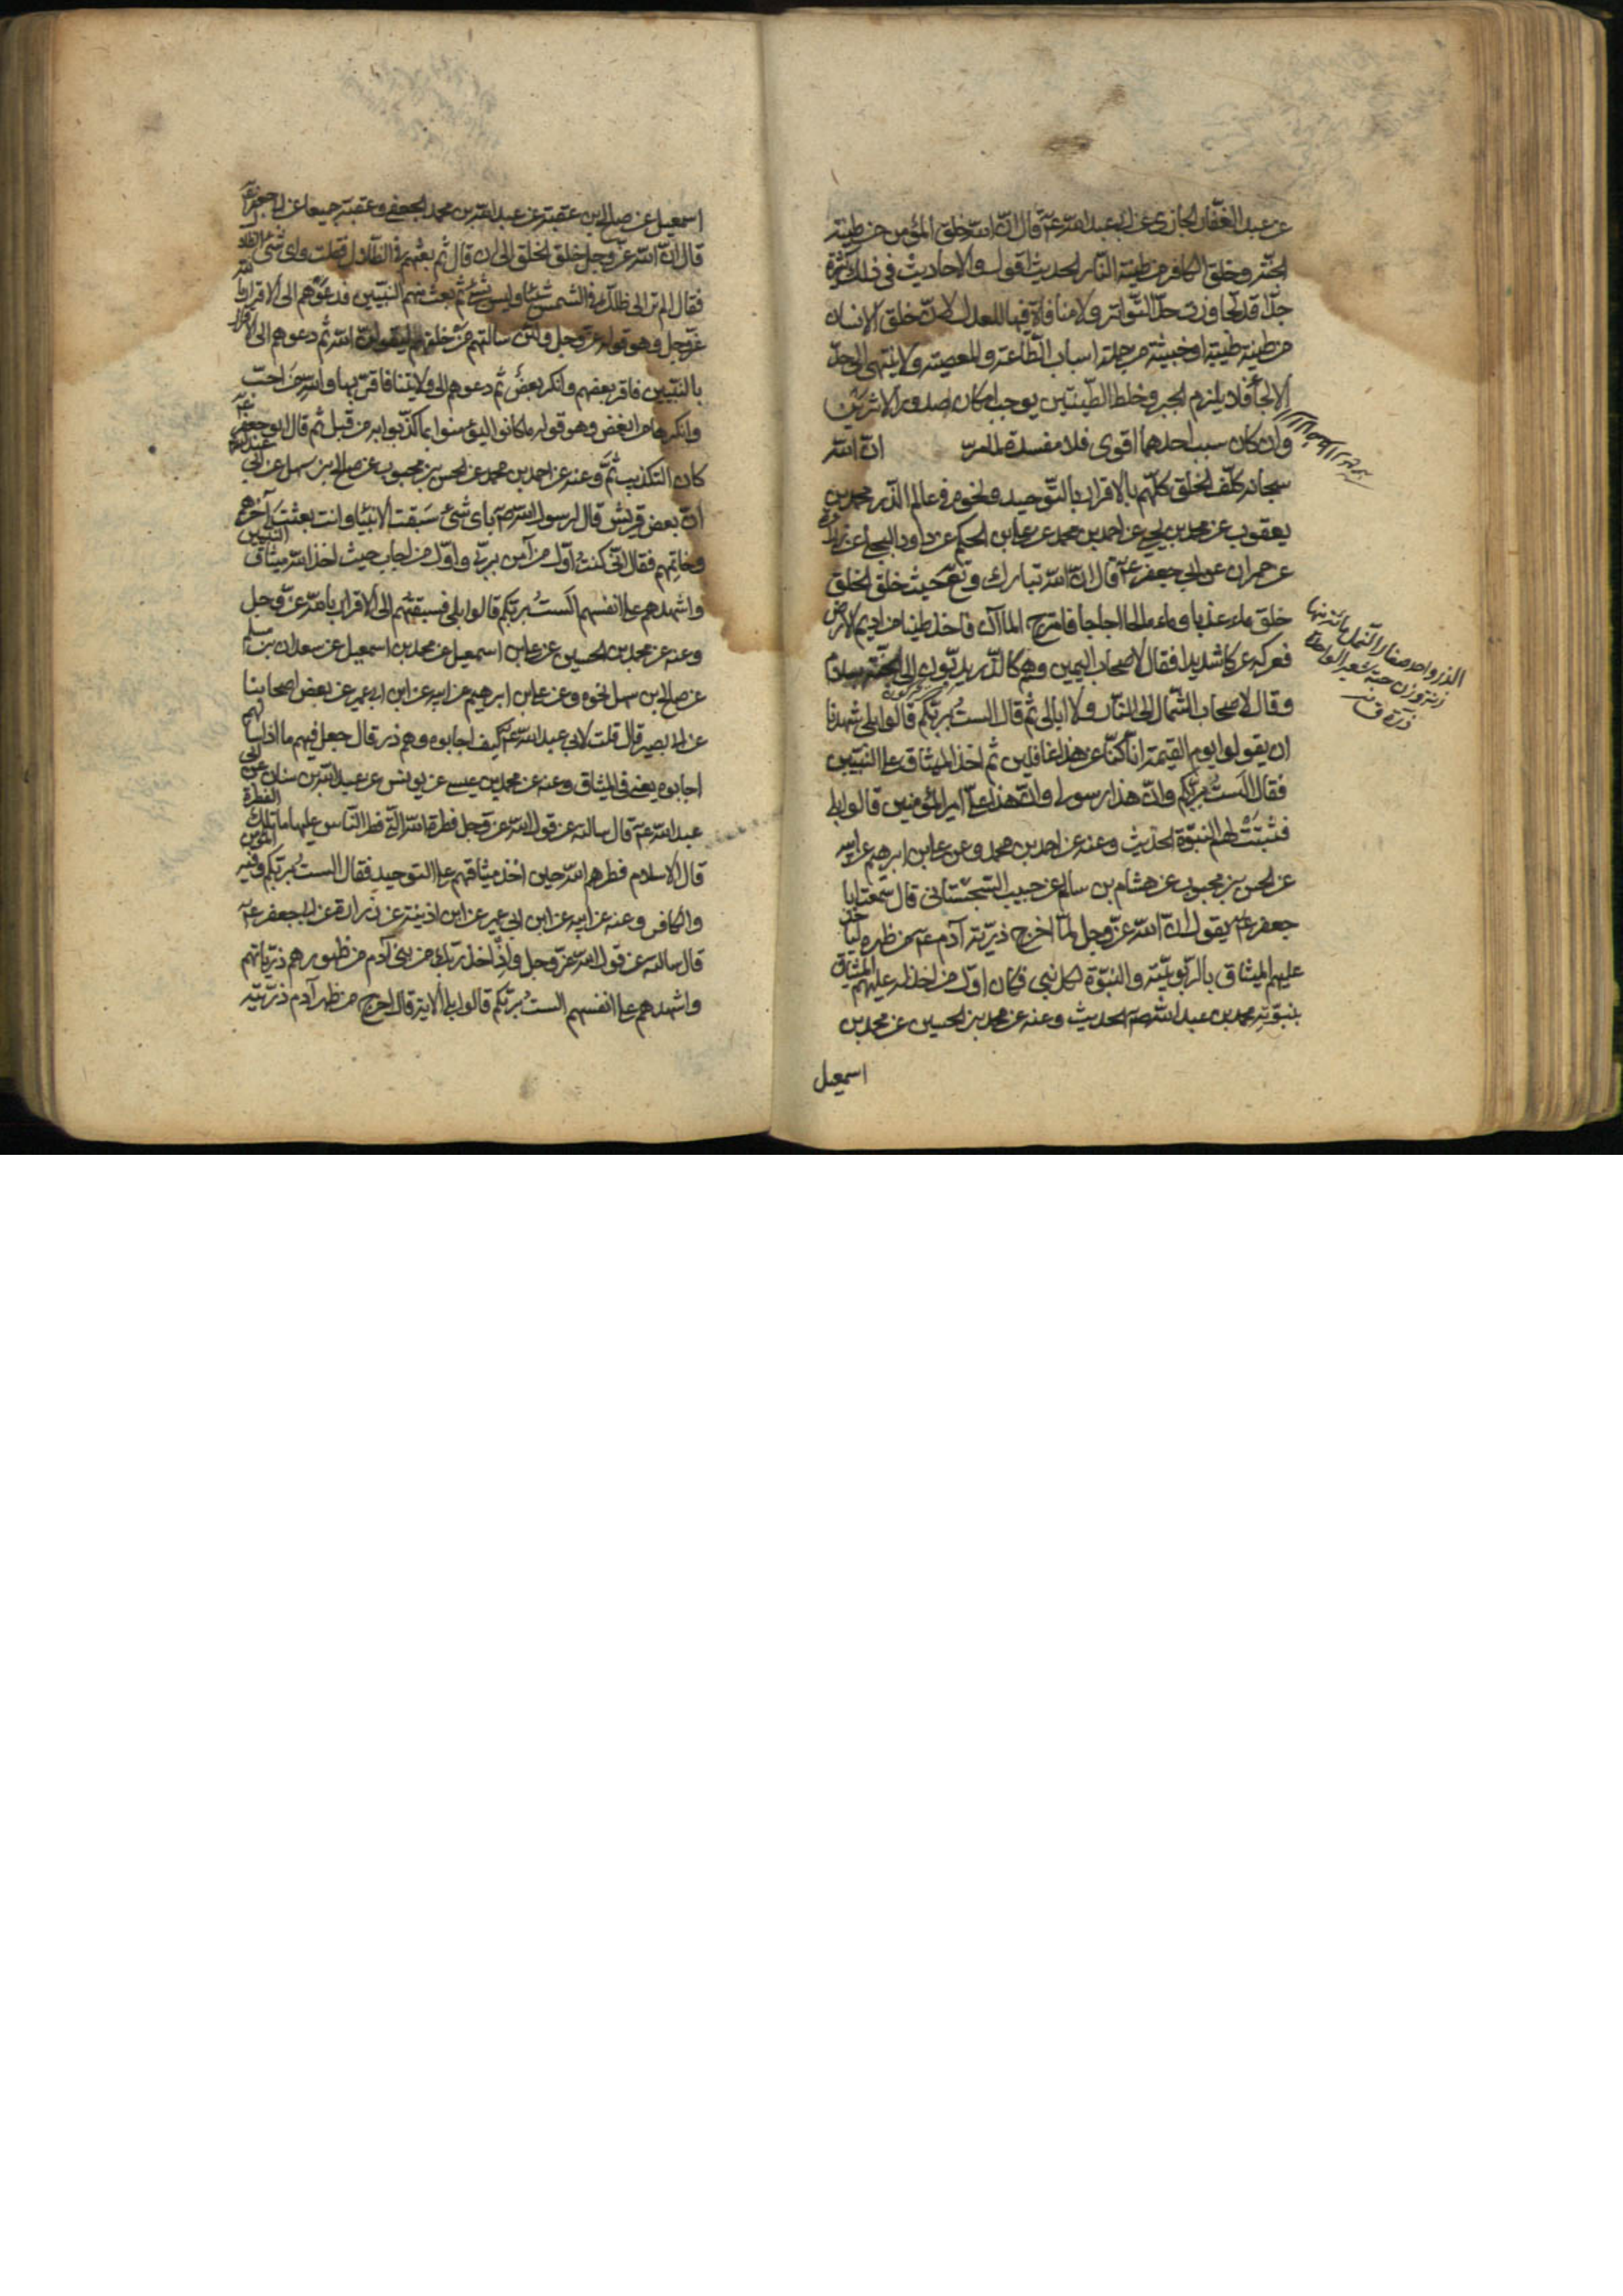 عن عبد الغفار الجازي عن ابي عبد الله عۤ قال ان الله خلق المؤمن من طينة
الجنة وخلق الكافر من طينة النار الحديث اقول والاحاديث في ذلك كثيرة
جدّا قد تجاوزت حدّ التواتر ولا منافاة فيها للعدل لانّ خلق الانسان
من طينة طيبة او خبيثة من جملة اسباب الطاعة والمعصية ولا ينتهي الى حدّ
الالجاء فلا يلزم الجبر وخلط الطينتين يوجب امكان صدور الاثرين
وان كان سبب احدهما اقوى فلا مفسدة ان الله
سبحانه كلّف الخلق كلّهم بالاقرار بالتوحيد ونحوه في عالم الذر محمد بن
يعقوب عن محمد بن يحيى عن احمد بن محمد عن علي بن الحكم عن داود العجلي عن زرارة
عن حمران عن ابي جعفر عۤ قال ان الله تبارك وتعۤ حيث خلق الخلق
خلق ماء عذبا وماء مالحا اجاجا فامتزج الماآن فاخذ طينا من اديم الارض
فعركه عركا شديدا فقال لاصحاب اليمين وهم كالذر يدبّون الى الجنة بسلام
وقال لاصحاب الشمال الى النار ولا ابالي ثم قال الستُ بربّكم قالوا بلى شهدنا
ان يقولوا يوم القيمة انا كنّا عن هذا غافلين ثم اخذ الميثاق على النبيين
فقال الستُ بربّكم وانّ هذا رسولي وانّ هذا علي امير المؤمنين قالوا بلى
فثبتت لهم النبوّة الحديث وعنه عن احمد بن محمد وعن علي بن ابرهيم عن ابيه
عن الحسن بن محبوب عن هشام بن سالم عن حبيب السجستاني قال سمعت ابا
جعفر عۤ يقول ان الله عزّ وجل لمّا اخرج ذريّة آدم عۤ من ظهره لياخذ
عليهم الميثاق بالربوبيّة والنبوّة لكل نبي فكان اوّل من اخذ له عليهم الميثاق
بنبوّته محمد بن عبد الله صۤ الحديث وعنه عن محمد بن الحسين عن محمد بن
اسمعيل
الذر واحد صغار النمل مائة منها
زنة وزن حبة شعير الواحدة
ذرة ق
اسمعيل عن صالح بن عقبة عن عبد الله بن محمد الجعفي وعقبة جميعا عن ابي جعفر عۤ
قال ان الله عزّ وجل خلق الخلق الى ان قال ثم بعثهم في الظلال فقلت واي شئ الظلال
فقال الم تر الى ظلّك في الشمس شيئا وليس بشئ ثم بعث منهم النبيّين فدعوهم الى الاقرار بالله
عزّ وجل وهو قوله عزّ وجل ولئن سالتهم مَن خلقهم ليقولن الله ثم دعوهم الى الاقرار
بالنبيّين فاقر بعضهم وانكر بعضٌ ثم دعوهم الى ولايتنا فاقرّ بها والله من احبّ
وانكرها من ابغض وهو قوله ما كانوا ليؤمنوا بما كذّبوا به من قبل ثم قال ابو جعفر عۤ
كان التكذيب ثَمَّ وعنه عن احمد بن محمد عن الحسن بن محبوب عن صالح بن سهل عن ابي عبد الله عۤ
انّ بعض قريش قال لرسول الله صۤ باي شئ سَبقت الانبياء وانت بعثت آخرهم
وخاتمهم فقال انّي كنتُ اوّل من آمن بربّي واوّل من اجاب حيث اخذ الله ميثاق النبيين
واشهدهم على انفسهم الستُ بربّكم قالوا بلى فسبقتهم الى الاقرار بالله عزّ وجل
وعنه عن محمد بن الحسين عن علي بن اسمعيل عن محمد بن اسمعيل عن سعدان بن مسلم
عن صالح بن سهل نحوه وعن علي بن ابرهيم عن ابيه عن ابن ابي عمير عن بعض اصحابنا
عن ابي بصير قال قلت لابي عبد الله عۤ كيف اجابوه وهم ذر قال جعل فيهم ما اذا سالهم
اجابوه يعني في الميثاق وعنه عن محمد بن عيسى عن يونس عن عبد الله بن سنان عن ابي
عبد الله عۤ قال سالته عن قول الله عزّ وجل فطرة الله التي فطر الناس عليها ما تلك الفطرة
قال الاسلام فطرهم الله حين اخذ ميثاقهم على التوحيد فقال الستُ بربّكم وفيه المؤمن
والكافر وعنه عن ابيه عن ابن ابي عمير عن ابن اذينة عن زرارة عن ابي جعفر عۤ
قال سالته عن قول الله عزّ وجل واذ اخذ ربّك من بني آدم من ظهورهم ذريّاتهم
واشهدهم على انفسهم الستُ بربّكم قالوا بلى الاية قال اخرج من ظهر آدم ذرّيّته